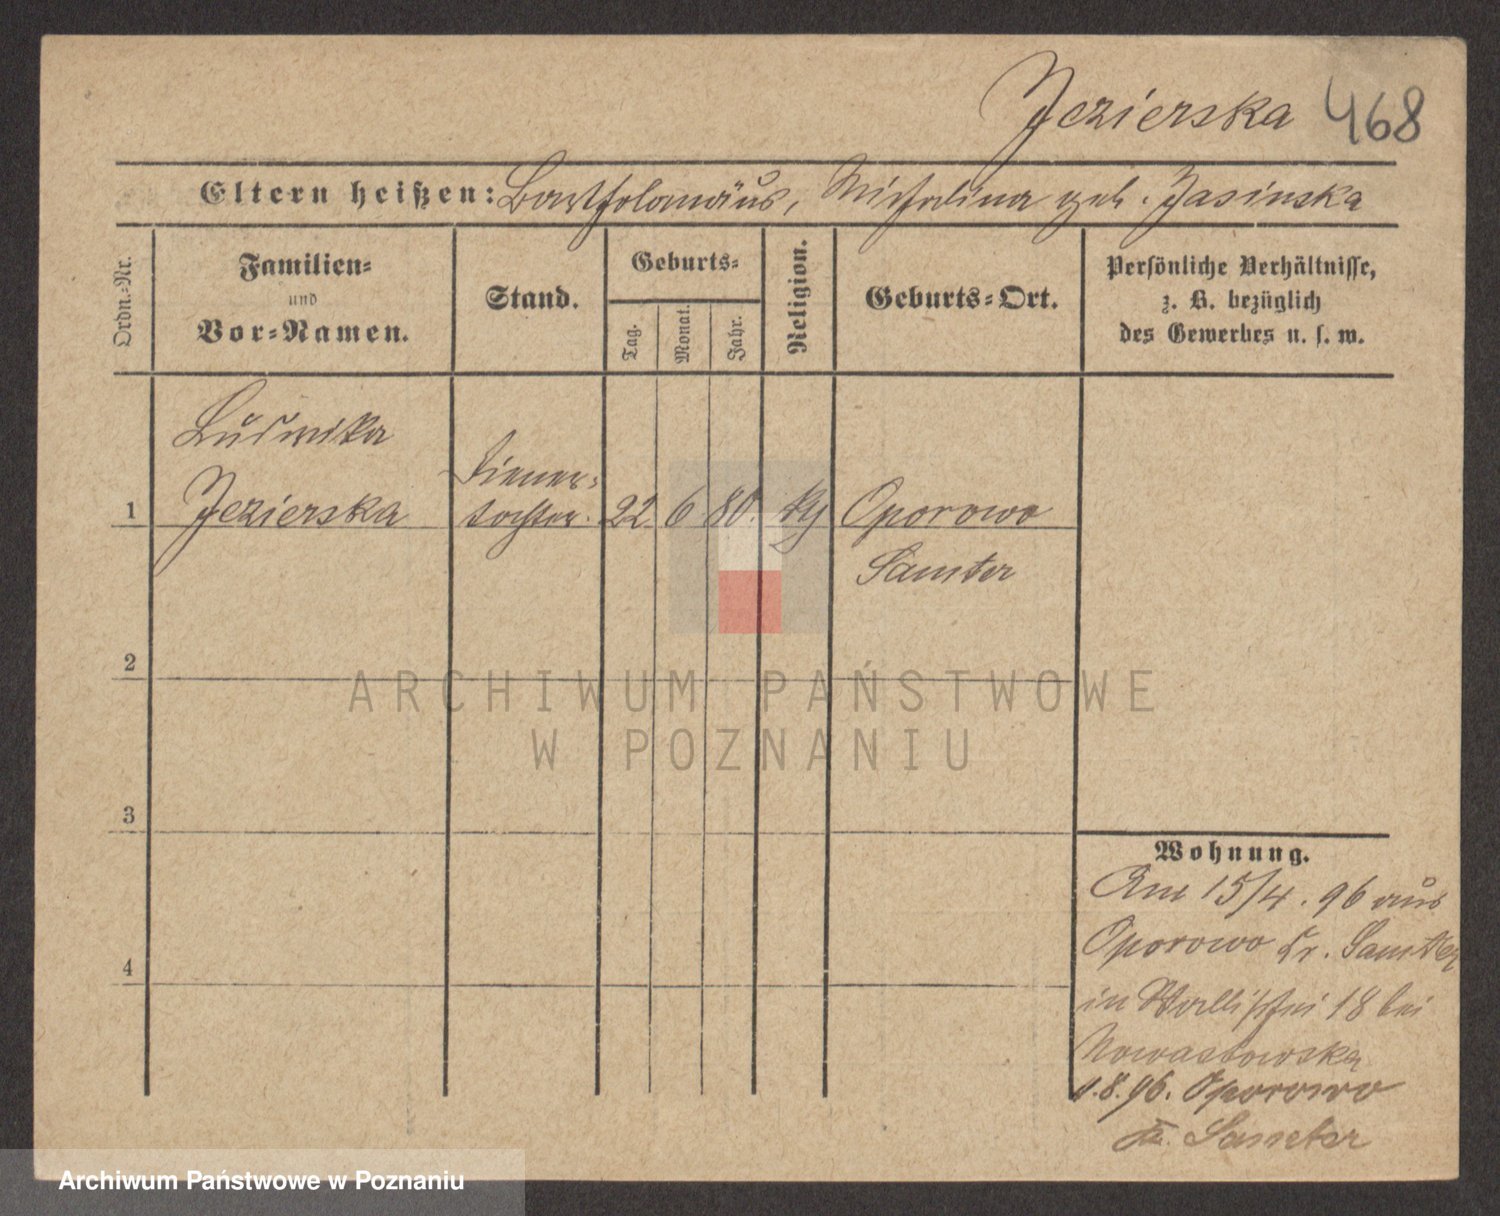 Jezierska 468
Eltern heißen: Bartholomäus, Michalina geb. Jasinska
Ordn.-Nr.
Familien-
und
Vor-Namen.
Stand.
Geburts-
Tag.
Monat.
Jahr.
Religion.
Geburts-Ort.
Persönliche Verhältnisse,
z. B. bezüglich
des Gewerbes u. s. w.
Ludwika
Diener-
1 Jezierska tochter. 22 6 80. Oporowo
Samter
2
ARCHIWUM PAŃSTWOWE
W POZNANIU
3
Wohnung.
Am 15/4. 96 aus
Oporowo Kr. Samter
in Wallischei 18 bei
4
Nowastowska
1.8.96. Oporowo
Kr. Samter
Archiwum Państwowe w Poznaniu